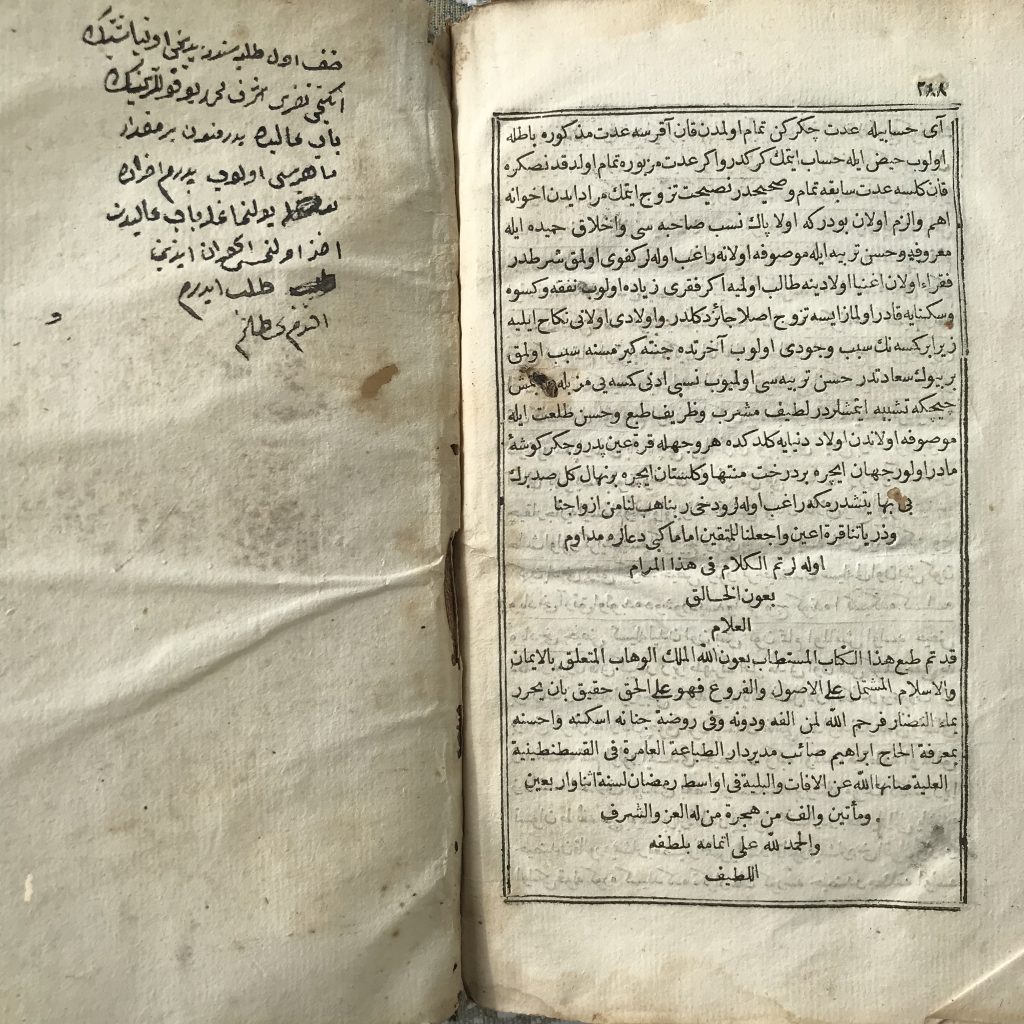 ٢٨٨
آی حسابیله عدت چكركن تمام اولمدن قان آقرسه عدت مذكوره باطله
اولوب حیض ایله حساب ایتمك كركدر واكر عدت مزبوره تمام اولدقدنصكره
قان كلسه عدت سابقه تمام وصحیحدر نصیحت تزوج ایتمك مراد ایدن اخوانه
اهم والزم اولان بودركه اولا پاك نسب صاحبه سی واخلاق حمیده ایله
معروفه وحسن تربیه ایله موصوفه اولانه راغب اوله لر كفوی اولمق شرطدر
فقراء اولان اغنیا اولادینه طالب اولمیه اكر فقری زیاده اولوب نفقه وكسوه
وسكنایه قادر اولماز ایسه تزوج اصلا جائز دكلدر واولادی اولانی نكاح ایلیه
زیرا بر كسه نك سبب وجودی اولوب آخرتده جنته كیرمسنه سبب اولمق
بر بیوك سعادتدر حسن تربیه سی اولمیوب نسبی ادنی كسه یی مزبله ده بتمش
چیچكه تشبیه ایتمشلردر لطیف مشرب وظریف طبع وحسن طلعت ایله
موصوفه اولاندن اولاد دنیایه كلدكده هر وجهله قرة عین پدر وجكر كوشهٔ
مادر اولور جهان ایچره بر درخت منتها وكلستان ایچره بر نهال كل صد برك
بی بها یتشدرمكه راغب اوله لر ودخی ربنا هب لنا من ازواجنا
وذریاتنا قرة اعین واجعلنا للمتقین اماما كبی دعالره مداوم
اوله لر تم الكلام فی هذا المرام
بعون الخالق
العلام
قد تم طبع هذا الكتاب المستطاب بعون الله الملك الوهاب المتعلق بالایمان
والاسلام المشتمل علی الاصول والفروع فهو علی الحق حقیق بان یحرر
بماء النضار فرحم الله لمن الفه ودونه وفی روضة جنانه اسكنه واحسنه
بمعرفة الحاج ابراهیم صائب مدیر دار الطباعة العامرة فی القسطنطینیة
العلیة صانها الله عن الافات والبلیة فی اواسط رمضان لسنة اثنا واربعین
ومأتین والف من هجرة من له العز والشرف
والحمد لله علی اتمامه بلطفه
اللطیف
صنف اول طلبه سندن یدنجی اونباشینك
ایكنجی نفری
باب عالیده پدرمنون بر مقدار
اولوب پدرم
یولنماغله باب عالیدن
اخذ اولنمسی
طلب ایدرم
افندم